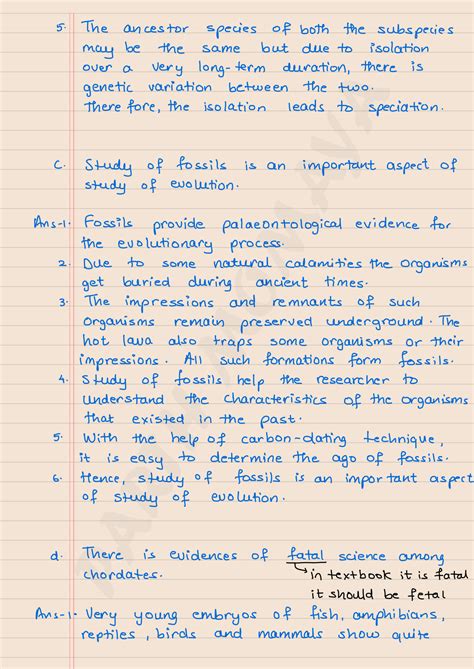 5. The ancestor species of both the subspecies
may be the same but due to isolation
over a very long-term duration, there is
genetic variation between the two.
There fore, the isolation leads to speciation.
C. Study of fossils is an important aspect of
study of evolution.
Ans-1. Fossils provide palaeontological evidence for
the evolutionary process.
2. Due to some natural calamities the organisms
get buried during ancient times.
3. The impressions and remnants of such
organisms remain preserved underground. The
hot lava also traps some organisms or their
impressions. All such formations form fossils.
4. Study of fossils help the researcher to
understand the characteristics of the organisms
that existed in the past.
5. With the help of carbon-dating technique,
it is easy to determine the ago of fossils.
6. Hence, study of fossils is an important aspect
of study of evolution.
d. There is evidences of fatal science among
chordates.
in textbook it is fatal
it should be fetal
Ans-1. Very young embryos of fish, amphibians,
reptiles, birds and mammals show quite